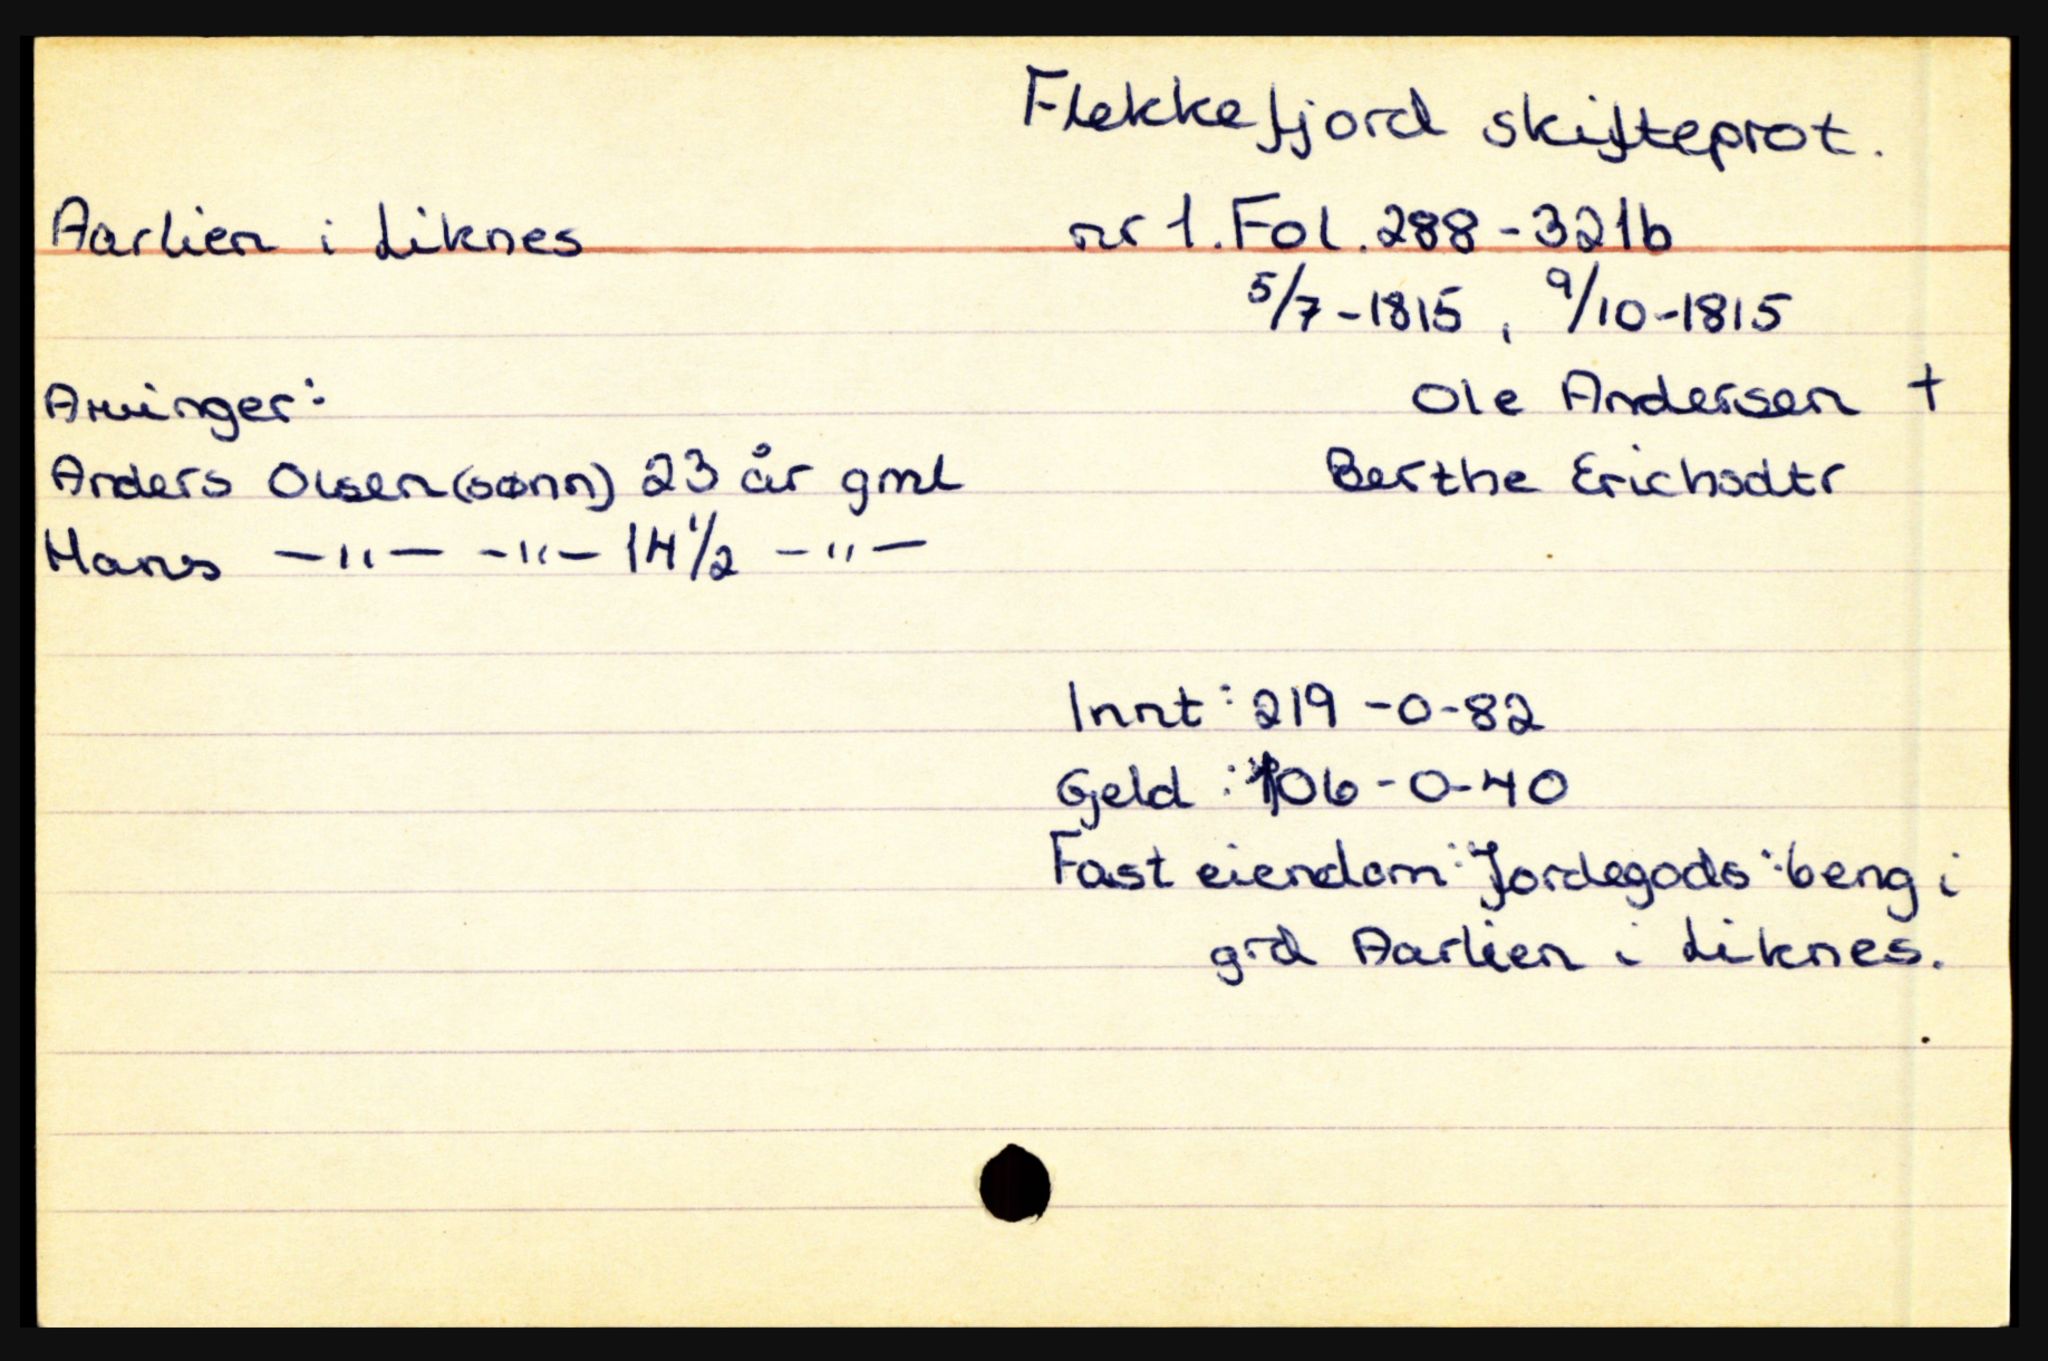 Flekkefjord skifteprot.
Aarlien i Liknes nr 1. Fol. 288-321b
5/7-1815, 9/10-1815
Arvinger: Ole Andersen +
Anders Olsen (sønn) 23 år gml Berthe Erichsdtr
Hans -"- -"- 14 1/2 -"-
Innt: 219-0-82
Geld: 106-0-40
Fast eiendom: Jordegods: beng i
grd Aarlien i Liknes.